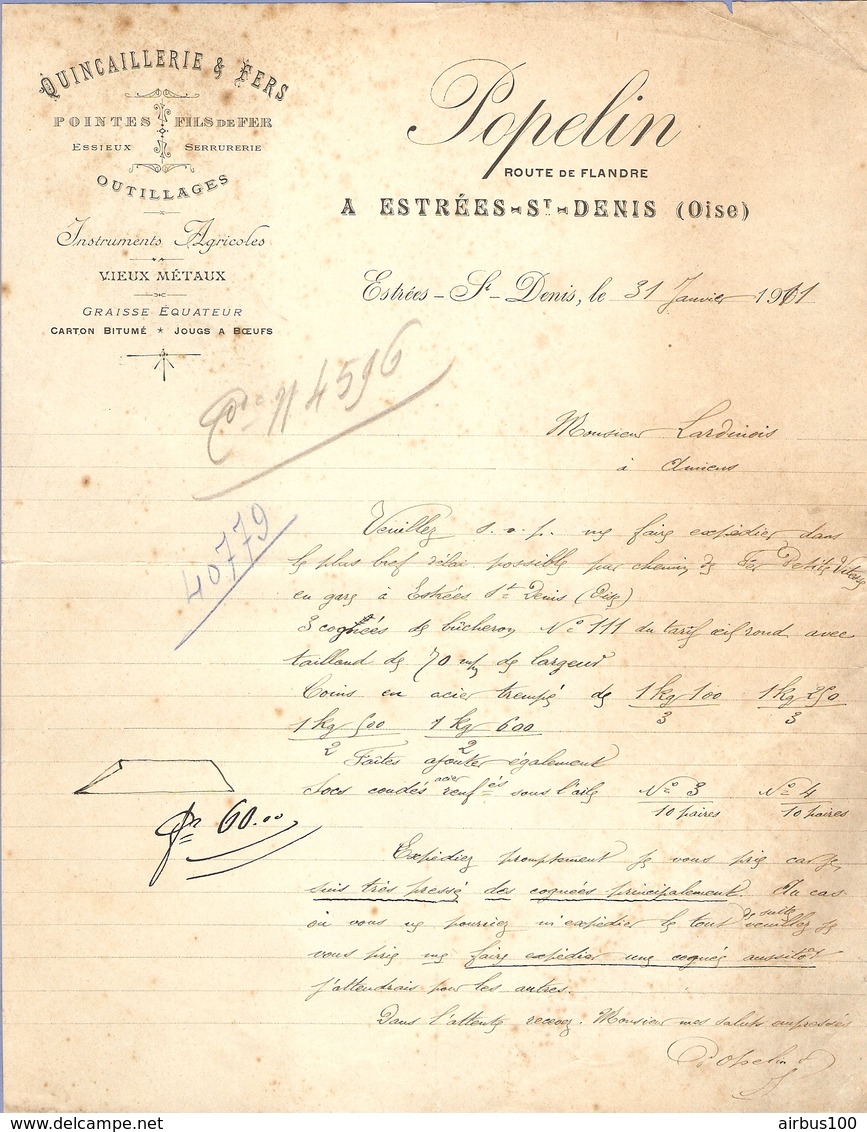 QUINCAILLERIE & FERS
POINTES FILS DE FER
ESSIEUX SERRURERIE
OUTILLAGES
Instruments Agricoles
VIEUX MÉTAUX
GRAISSE EQUATEUR
CARTON BITUMÉ * JOUGS A BŒUFS
Popelin
ROUTE DE FLANDRE
A ESTRÉES-ST-DENIS (Oise)
Estrées-St-Denis, le 31 Janvier 1911
N 4596
Monsieur Lardinois
à Amiens
40779
Veuillez s.v.p. me faire expédier dans
le plus bref délai possible par chemin de Fer Petite Vitesse
en gare à Estrées St Denis (Oise)
3 cognées de bûcheron No 111 du tarif œil rond avec
taillant de 70 m/m de largeur
Coins en acier trempé de 1 kg 100 1 kg 250
3 3
1 kg 500 1 kg 600
2 2
Faites ajouter également
Socs coudés acier renfés sous l'aile No 3 No 4
10 paires 10 paires
60.00
Expédiez promptement je vous prie car je
suis très pressé des cognées principalement. Au cas
où vous ne pourriez m'expédier le tout de suite veuillez je
vous prie me faire expédier une cognée aussitôt
j'attendrais pour les autres.
Dans l'attente recevez Monsieur mes saluts empressés
Popelin
delcampe.net
airbus100